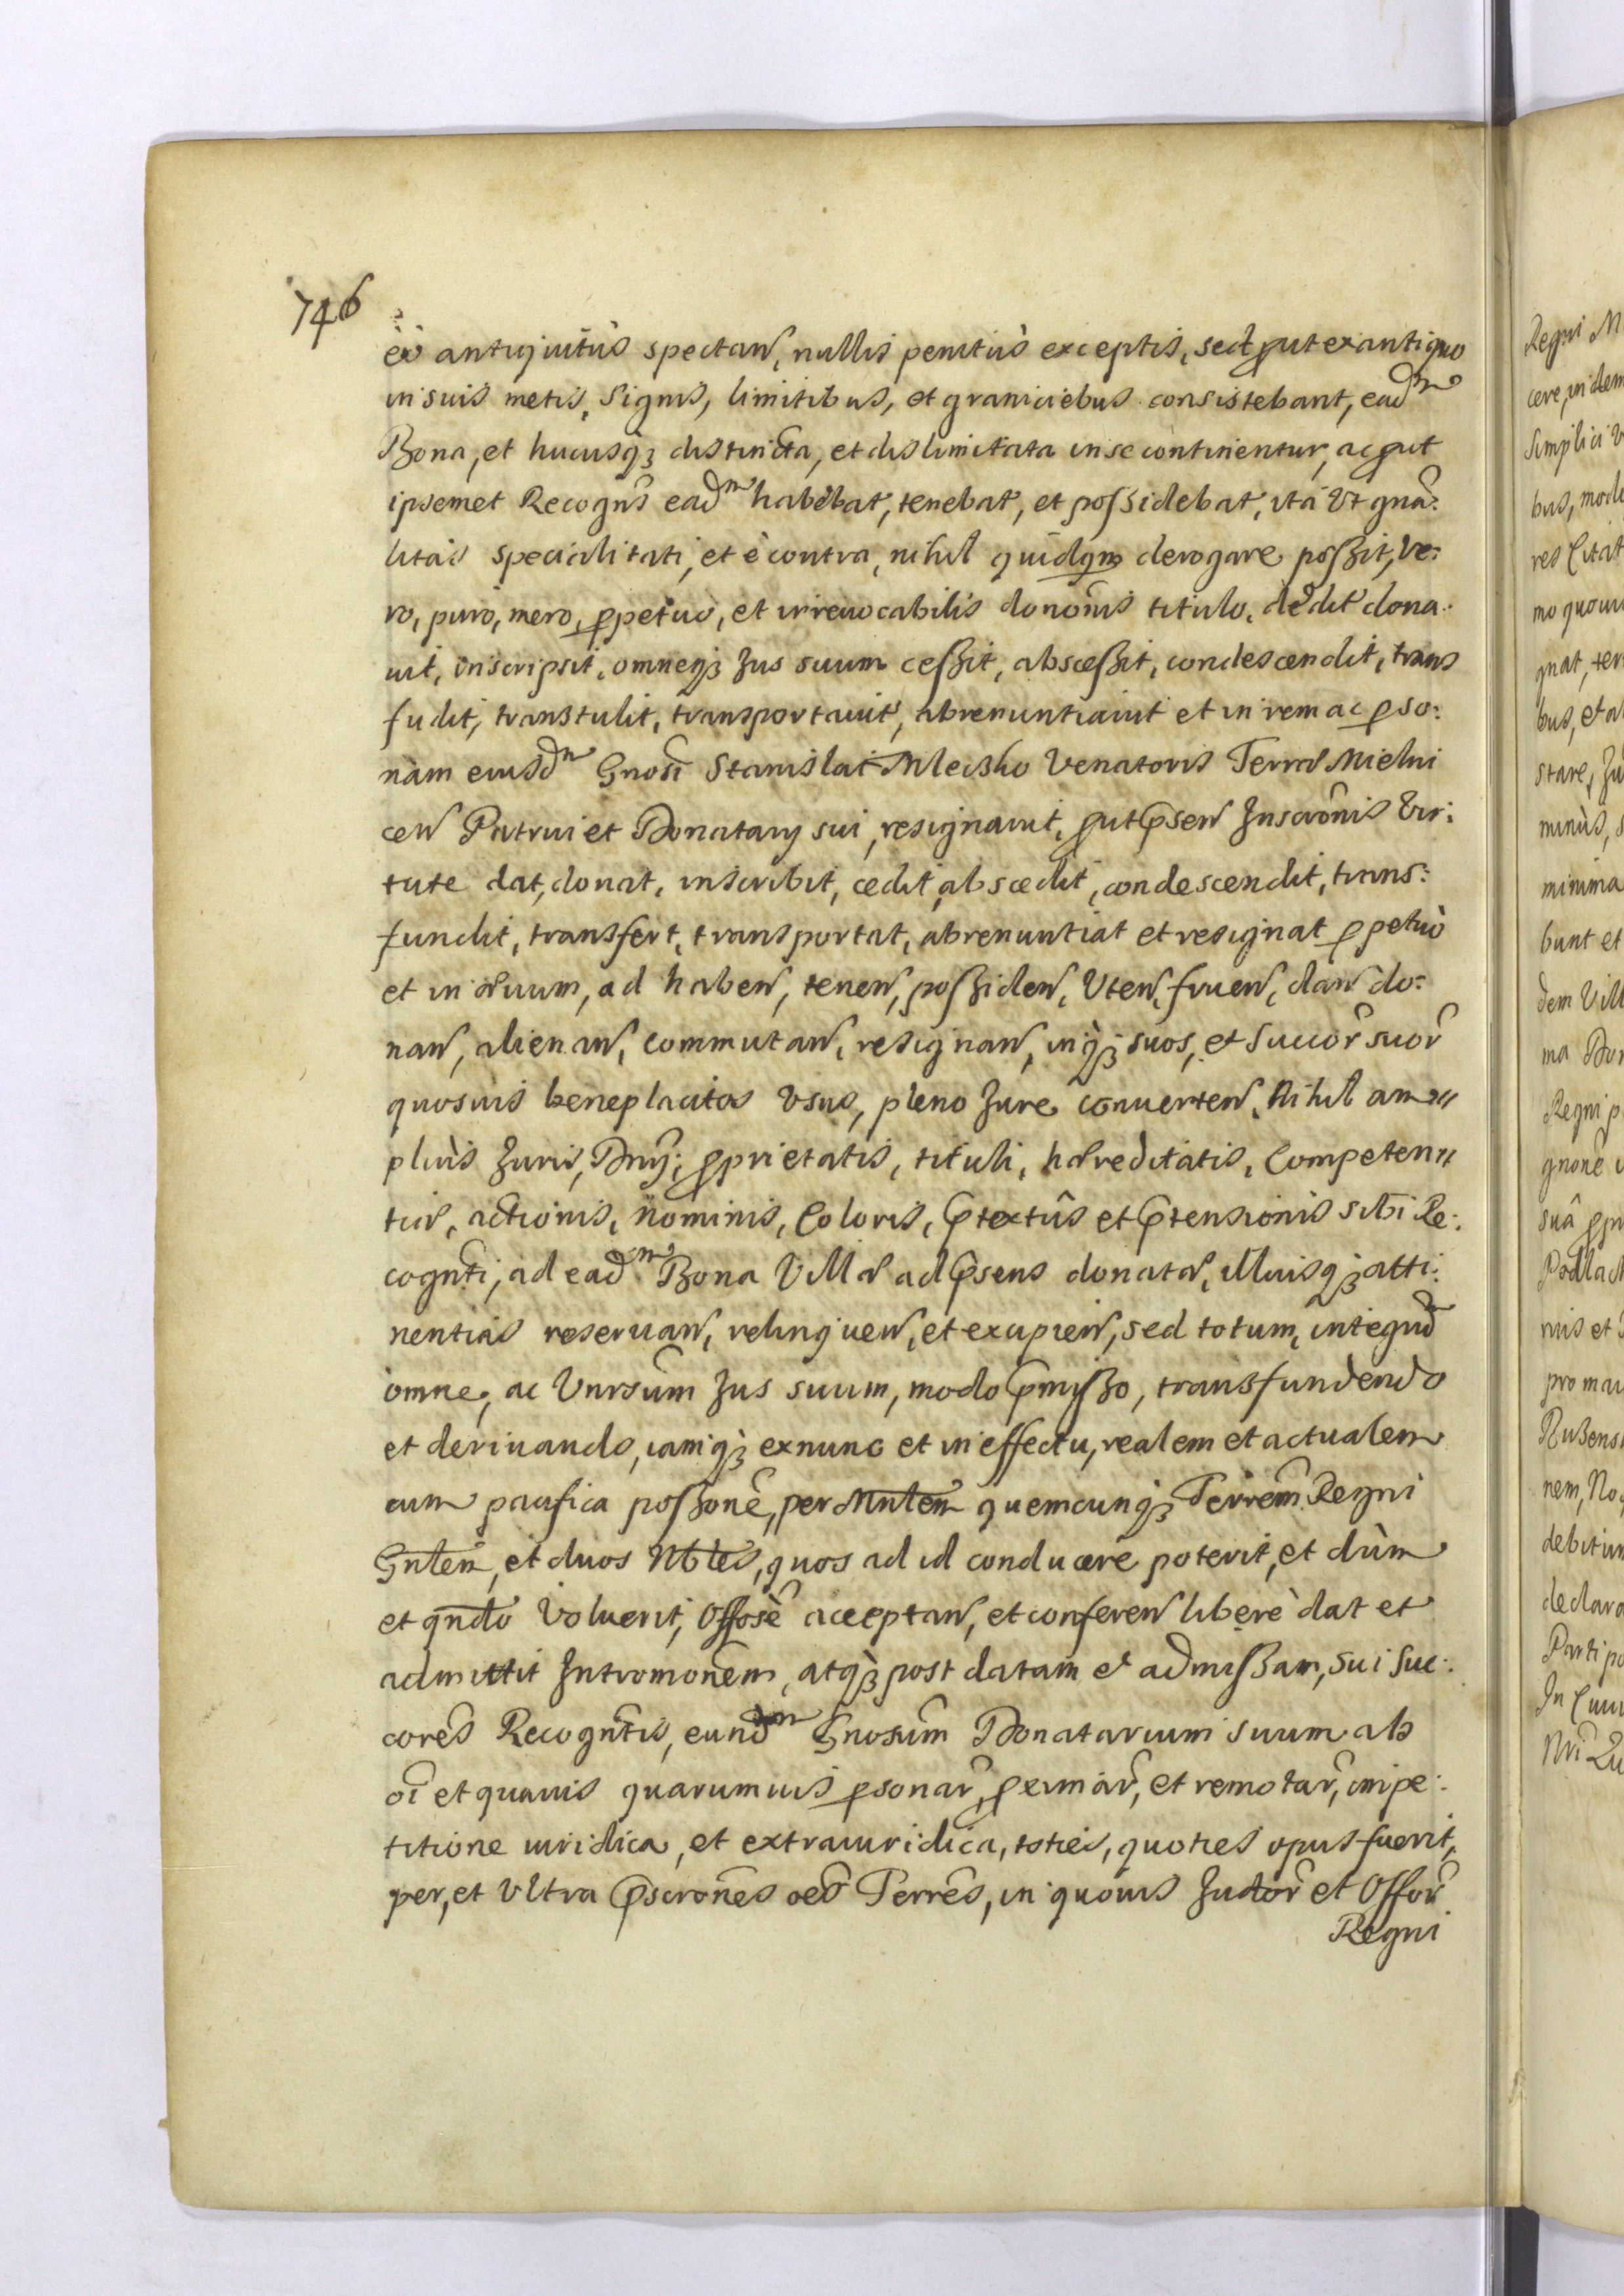 746
ex antiquitùs spectan, nullis penitùs exceptis, sed prout ex antiquo
in suis metis, Signis, limitibus, et graniciebus consistebant, eadm
Bona, et hucusq3 distincta, et dislimitata in se continentur, ac prout
ipsemet Recogns eadm habebat, tenebat, et possidebat, ità Ut gnã:
litas specialitati, et è contra, nihil quidqm derogare possit, ve:
ro, puro, mero, ppetuo, et irreuocabilis donõnis titulo, dedit dona:
uit, inscripsit, omneq3 Jus suum cessit, abscessit, condescendit, trans
fudit, transtulit, transportauit, abrenuntiauit et in rem ac pso:
nam eiusdm Gnosi Stanislai Mleczko Venatoris Terræ Mielni
cen Patrui et Donatarij sui, resignauit, prout pnsen Inscrõnis Vir:
tute dat, donat, inscribit, cedit, abscedit, condescendit, trans:
fundit, transfert, transportat, abrenuntiat et resignat ppetuò
et in æuum, ad haben, tenen, possiden, Uten, fruen, dan do:
nan, alienan, commutan, resignan, inq3 suos, et Succor̃ suor̃
quosuis beneplacitos Usus, pleno Jure conuerten, Nihil am„
pliùs Juris, Dnij, pprietatis, tituli, hæreditatis, Competen„
tiæ, actionis, nominis, Coloris, ptextûs et ptensionis sibi Re:
cognti, ad eadm Bona Villæ ad psens donatæ, illiusq3 atti:
nentias reseruan, relinquen, et excipien, sed totum, integrũ
omne, ac Unrsum Jus suum, modo pmisso, transfundendo
et deriuando, iamq3 ex nunc et in effectu, realem et actualem
cum pacifica possone, per Mntem quemcunq3 Terrem Regni
Gnlem, et duos Nbles, quos ad id conducere poterit, et dùm
et qndo Voluerit, Offose acceptan, et conferen liberè dat et
admittit Intromonem, atq3 post datam et admissam, sui suc:
cores Recogntis, eundm Gnosum Donatarium suum ab
oi et quauis quarumuis psonar̃, pximar̃, et remotar̃, impe:
titione iuridica, et extraiuridica, toties, quoties opus fuerit,
per, et Ultra pscrones oes Terres, in quouis Judor̃ et Offor̃
Regni